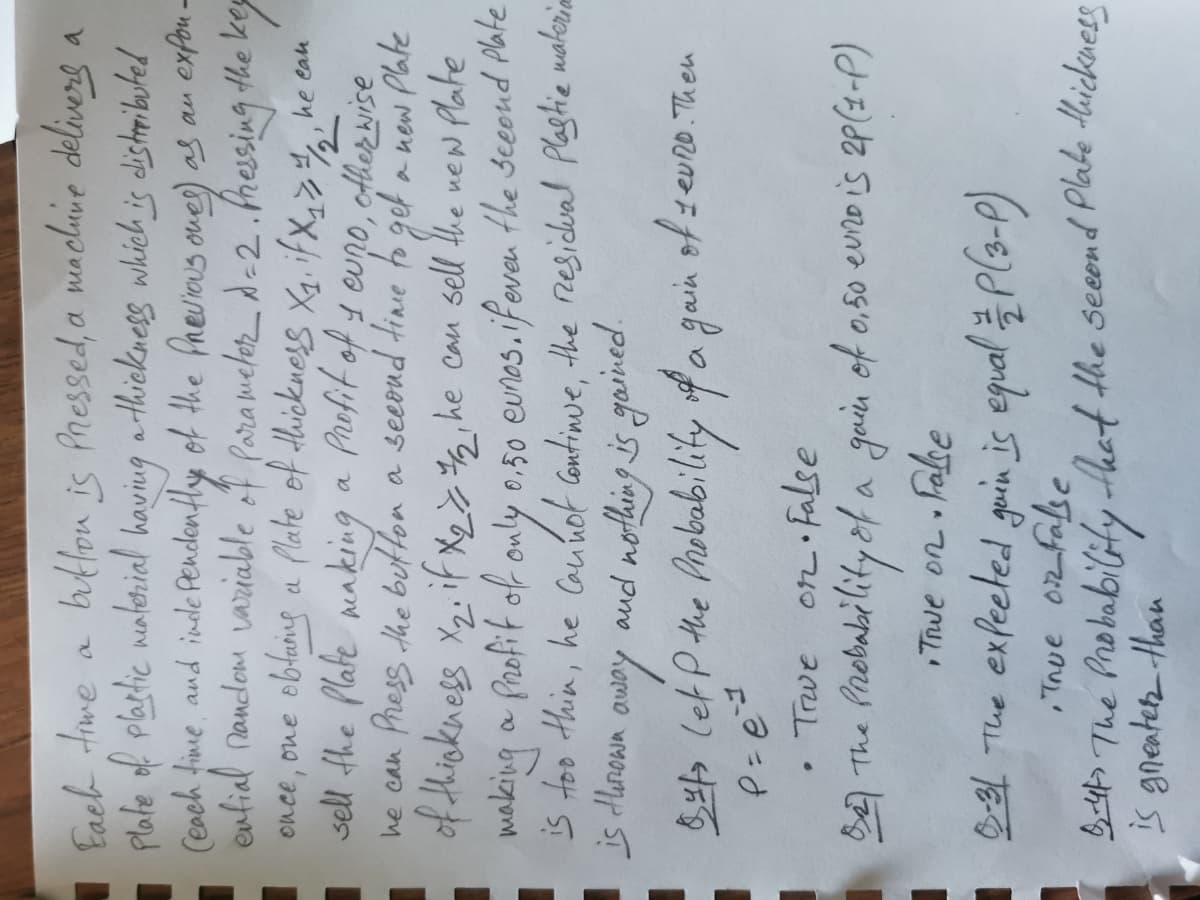 Each time a button is Pressed, a machine delivers a
Plate of plastic material having a thickness which is distributed
(each time, and independently of the Previous ones) as an expon-
ential random variable of Parameter λ=2. Pressing the key
once, one obtaing a plate of thickness X1. if X1 ≥ 1/2, he can
sell the Plate making a Profit of 1 euro, otherwise
he can Press the button a second time to get a new Plate
of thickness X2. if X2 ≥ 1/2, he can sell the new Plate
making a profit of only 0,50 euros. if even the second Plate
is too thin, he cannot continue, the residual Plastic material
is thrown away and nothing is gained.
Q-1> Let P the Probability of a gain of 1 euro. Then
P = e^-1
• True or • False
Q-2) The Probability of a gain of 0,50 euro is 2P(1-P)
• True or • False
Q-3) The expected gain is equal 1/2 P(3-P)
• True or False
Q-4> The Probability that the second Plate thickness
is greater than